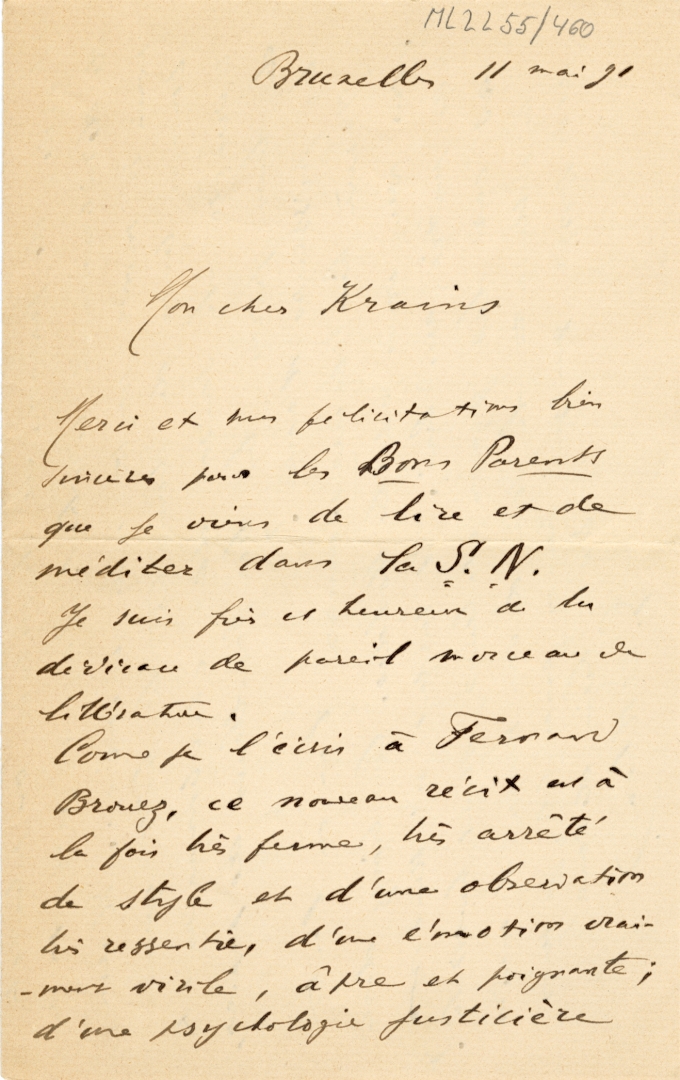 ML2L55/460
Bruxelles 11 mai 91
Mon cher Krains
Merci et mes félicitations bien
sincères pour les Bons Parents
que je viens de lire et de
méditer dans la S. N.
Je suis fier et heureux de la
dédicace de pareil morceau de
littérature.
Come je l'écris à Fernand
Brouez, ce nouveau récit est à
la fois très ferme, très arrêté
de style et d'une observation
très ressentie, d'une émotion vrai-
-ment virile, âpre et poignante ;
d'une psychologie justicière